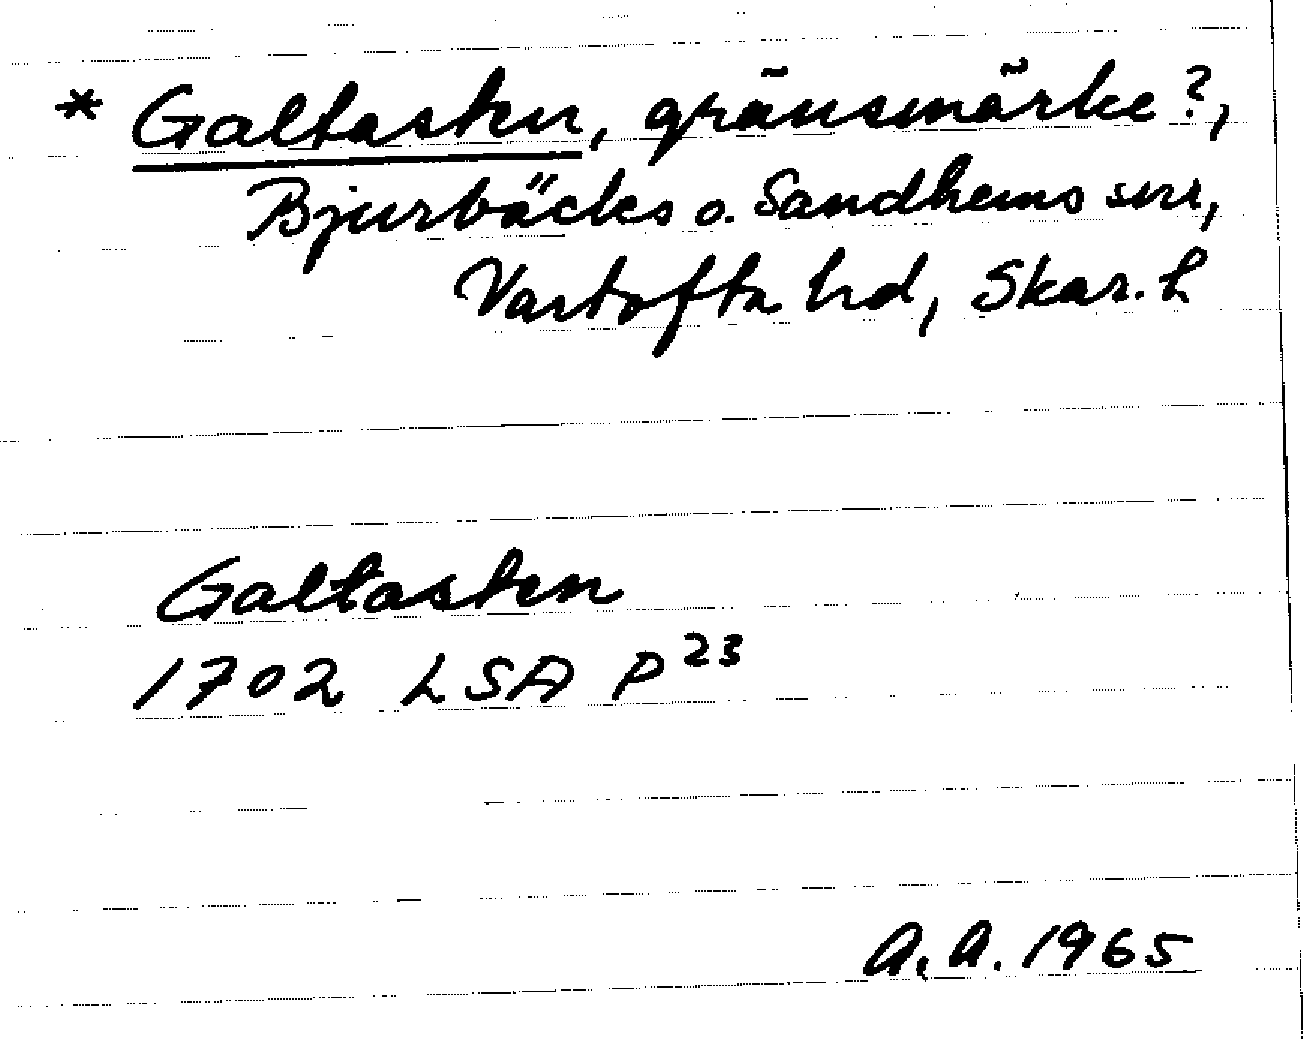 * Galtasken, gränsmärke?,
Bjurbäcks o. Sandhems snr,
Vartofta hd, Skar. l
Galtasken
1702 LSA P²³
A.A. 1965